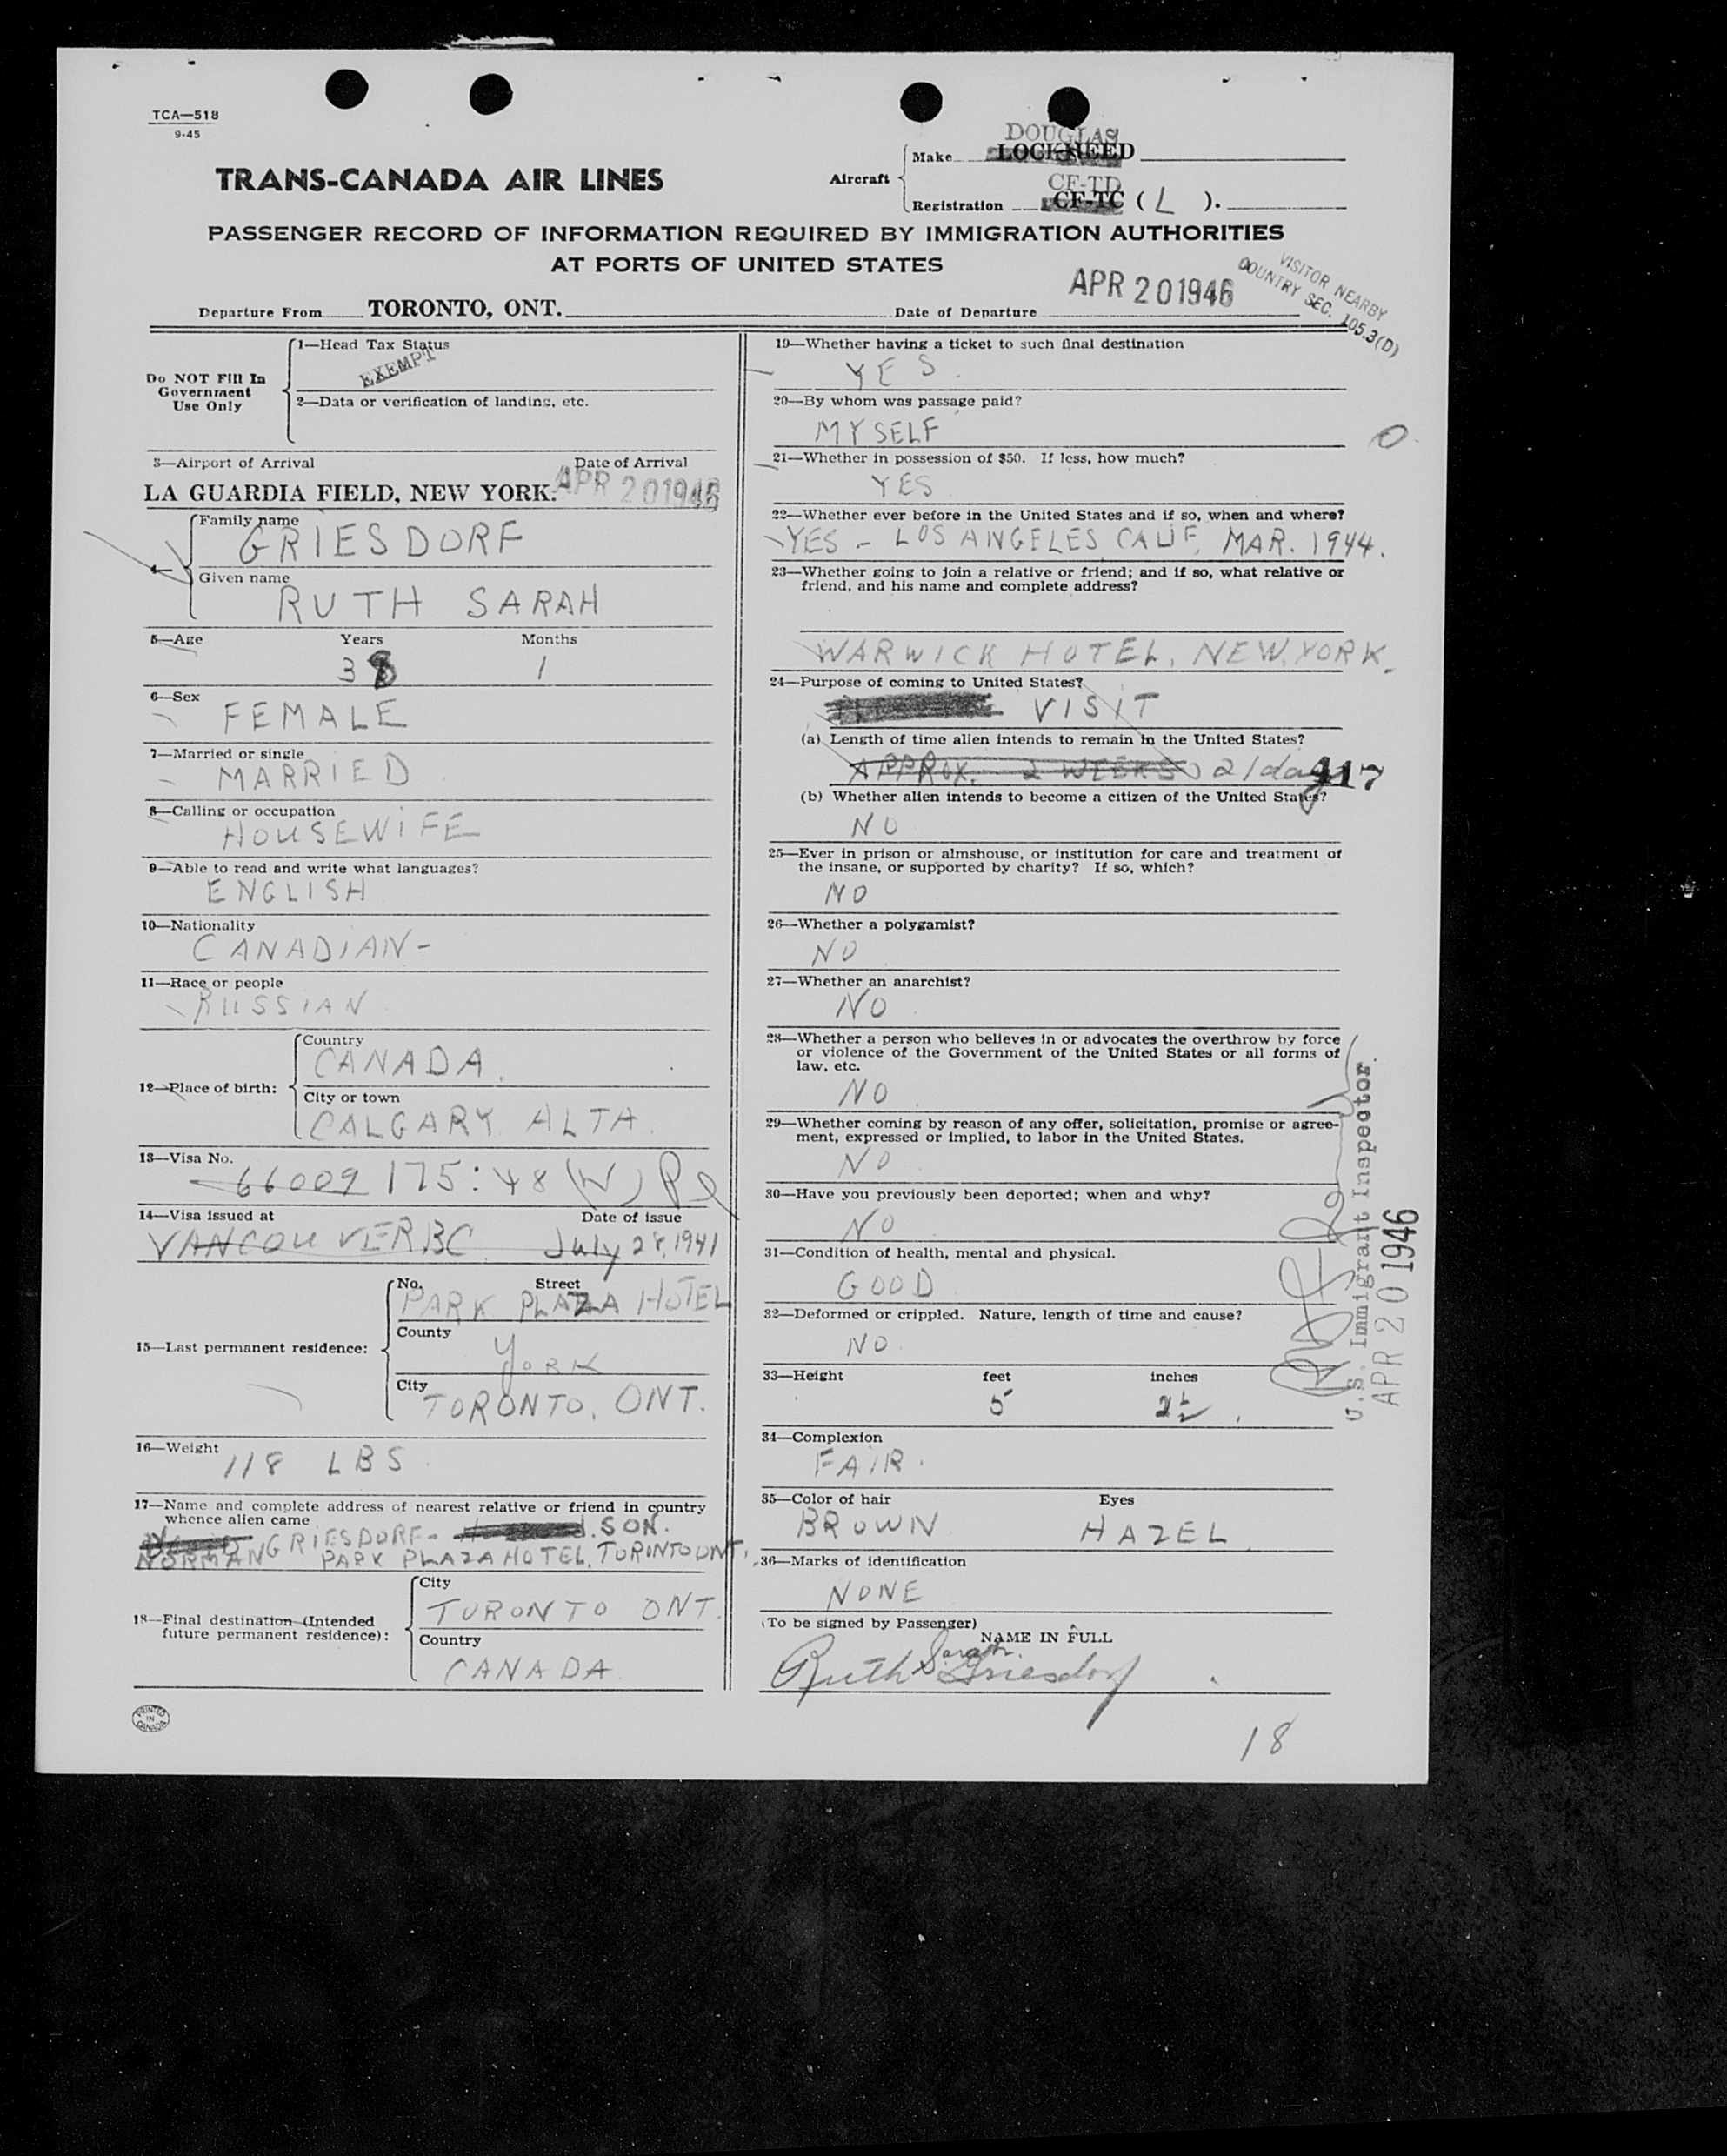 TCA—518
9-45
TRANS-CANADA AIR LINES
Aircraft
Make
DOUGLAS
LOCKHEED
Registration
CF-TD
CF-TC ( L ).
PASSENGER RECORD OF INFORMATION REQUIRED BY IMMIGRATION AUTHORITIES
AT PORTS OF UNITED STATES
Departure From TORONTO, ONT.
Date of Departure APR 20 1946
VISITOR NEARBY
COUNTRY SEC. 105.3(D)
Do NOT Fill In
Government
Use Only
1—Head Tax Status
EXEMPT
2—Data or verification of landing, etc.
3—Airport of Arrival Date of Arrival
LA GUARDIA FIELD, NEW YORK. APR 20 1946
4—
Family name
GRIESDORF
Given name
RUTH SARAH
5—Age Years Months
38 1
6—Sex
FEMALE
7—Married or single
MARRIED
8—Calling or occupation
HOUSEWIFE
9—Able to read and write what languages?
ENGLISH
10—Nationality
CANADIAN-
11—Race or people
RUSSIAN
12—Place of birth:
Country
CANADA.
City or town
CALGARY ALTA.
13—Visa No.
66009 175:48 (W)
14—Visa issued at Date of issue
VANCOUVER BC July 28, 1941
15—Last permanent residence:
No. Street
PARK PLAZA HOTEL
County
YORK
City
TORONTO, ONT.
16—Weight
118 LBS.
17—Name and complete address of nearest relative or friend in country
whence alien came
GRIESDORF- SON.
NORMAN PARK PLAZA HOTEL, TORONTO ONT.
18—Final destination (Intended
future permanent residence):
City
TORONTO ONT.
Country
CANADA
PRINTED
IN
CANADA
19—Whether having a ticket to such final destination
YES.
20—By whom was passage paid?
MYSELF
O
21—Whether in possession of $50. If less, how much?
YES
22—Whether ever before in the United States and if so, when and where?
YES - LOS ANGELES CALIF, MAR. 1944.
23—Whether going to join a relative or friend; and if so, what relative or
friend, and his name and complete address?
WARWICK HOTEL, NEW YORK.
24—Purpose of coming to United States?
VISIT
(a) Length of time alien intends to remain in the United States?
APPROX. 2 WEEKS 21 days 417
(b) Whether alien intends to become a citizen of the United States?
NO
25—Ever in prison or almshouse, or institution for care and treatment of
the insane, or supported by charity? If so, which?
NO
26—Whether a polygamist?
NO
27—Whether an anarchist?
NO
28—Whether a person who believes in or advocates the overthrow by force
or violence of the Government of the United States or all forms of
law, etc.
NO
29—Whether coming by reason of any offer, solicitation, promise or agree-
ment, expressed or implied, to labor in the United States.
NO
30—Have you previously been deported; when and why?
NO
31—Condition of health, mental and physical.
GOOD
32—Deformed or crippled. Nature, length of time and cause?
NO.
33—Height feet inches
5 2½
34—Complexion
FAIR.
35—Color of hair Eyes
BROWN HAZEL
36—Marks of identification
NONE
(To be signed by Passenger)
NAME IN FULL
Ruth Sarah Griesdorf
U.S. Immigrant Inspector.
APR 20 1946
18